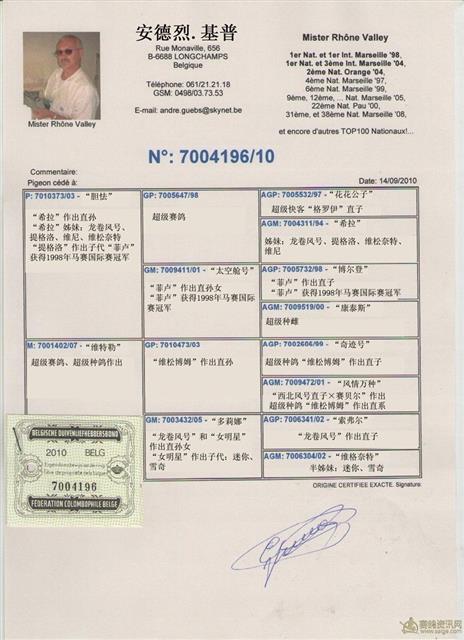 安德烈.基普
Rue Monaville, 656
B-6688 LONGCHAMPS
Belgique
Téléphone: 061/21.21.18
GSM: 0498/03.73.53
E-mail: andre.guebs@skynet.be
Mister Rhône Valley
Mister Rhône Valley
1er Nat. et 1er Int. Marseille '98,
1er Nat. et 3ème Int. Marseille '04,
2ème Nat. Orange '04,
4ème Nat. Marseille '97,
6ème Nat. Marseille '99,
9ème, 12ème, .. Nat. Marseille '05,
22ème Nat. Pau '00,
31ème, et 38ème Nat. Marseille '08,
et encore d'autres TOP100 Nationaux!...
N°: 7004196/10
Commentaire:
Pigeon cédé à:
Date: 14/09/2010
P: 7010373/03 - “胆怯”
“希拉”作出直孙
“希拉”姊妹：龙卷风号、
提格洛、维尼、维松奈特
“提格洛”作出子代“菲卢”
获得1998年马赛国际赛冠军
M: 7001402/07 - “维特勒”
超级赛鸽、超级种鸽作出
GP: 7005647/98
超级赛鸽
GM: 7009411/01 - “太空舱号”
“菲卢”作出直孙女
“菲卢”获得1998年马赛国际赛
冠军
GP: 7010473/03
“维松博姆”作出直孙
GM: 7003432/05 - “多莉娜”
“龙卷风号”和“女明星”
作出直孙女
“女明星”作出子代：迷你、
雪奇
AGP: 7005532/97 - “花花公子”
超级快客“格罗伊”直子
AGM: 7004311/94 - “希拉”
姊妹：龙卷风号、提格洛、维松奈特、
维尼
AGP: 7005732/98 - “博尔登”
“菲卢”作出直子
“菲卢”获得1998年马赛国际赛冠军
AGM: 7009519/00 - “康泰斯”
超级种雌
AGP: 7002606/99 - “奇迹号”
超级种鸽“维松博姆”作出直子
AGM: 7009472/01 - “风情万种”
“西北风号直子×赛贝尔”作出
超级种鸽“维松博姆”作出直系
AGP: 7006341/02 - “索弗尔”
“龙卷风号”作出直子
AGM: 7006304/02 - “维格奈特”
半姊妹：迷你、雪奇
BELGISCHE DUIVENLIEFHEBBERSBOND
2010 BELG
Eigendomsbewijs van de ring
Titre de propriété de la bague
7004196
FEDERATION COLOMBOPHILE BELGE
ORIGINE CERTIFIEE EXACTE. Signature:
赛鸽资讯网
www.saige.com